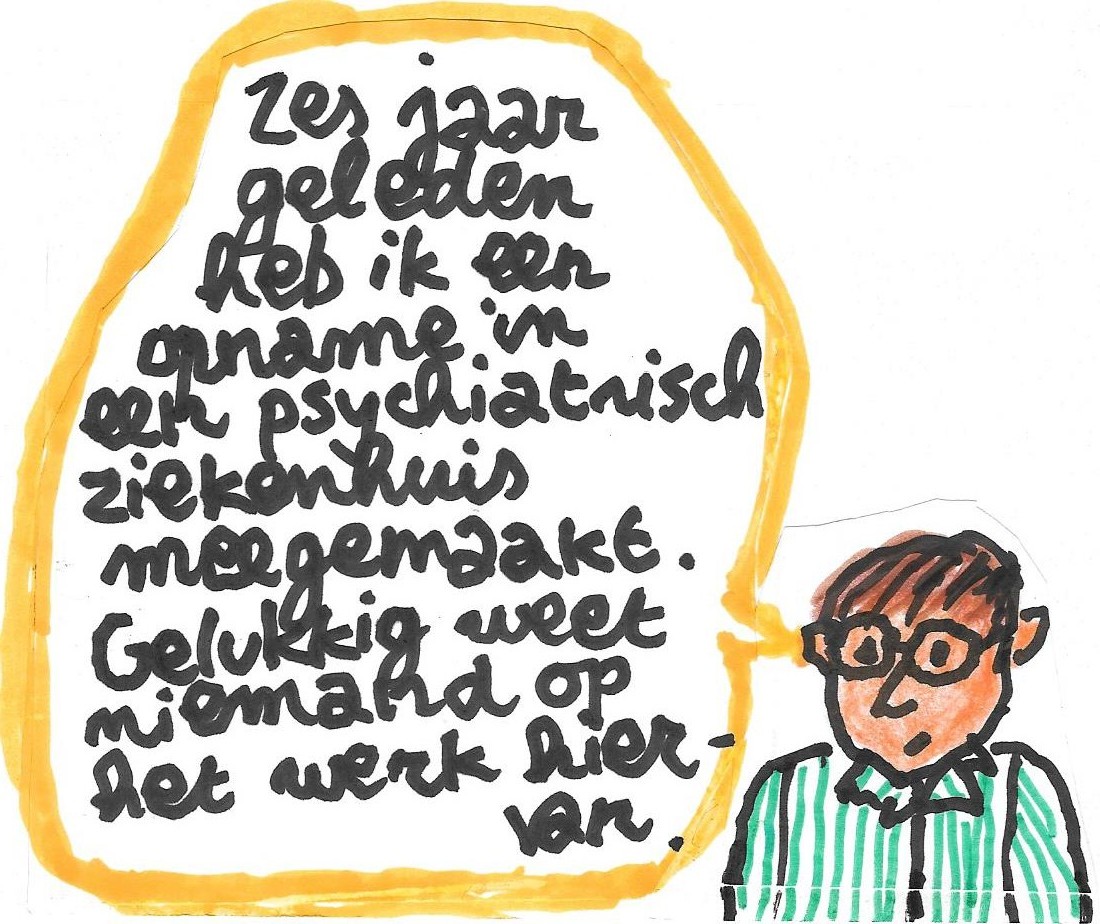 Zes jaar
geleden
heb ik een
opname in
een psychiatrisch
ziekenhuis
meegemaakt.
Gelukkig weet
niemand op
het werk hier-
van.